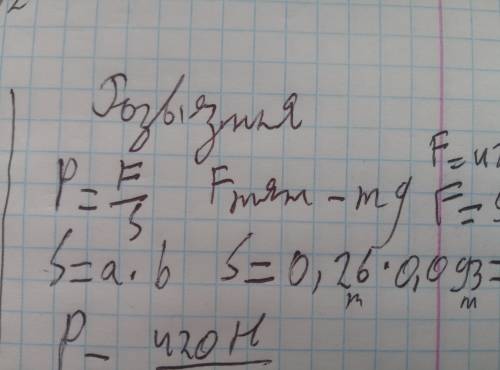 Розвязння
P = F/S  Fтяж - mg  F = 42
F =
S = a · b  S = 0,26 · 0,093 =
м м
P - 420 Н